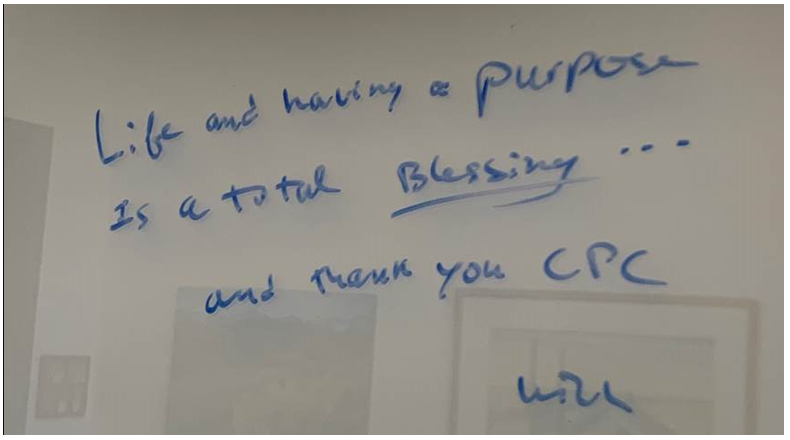 Life and having a purpose
Is a total Blessing ...
and thank you CPC